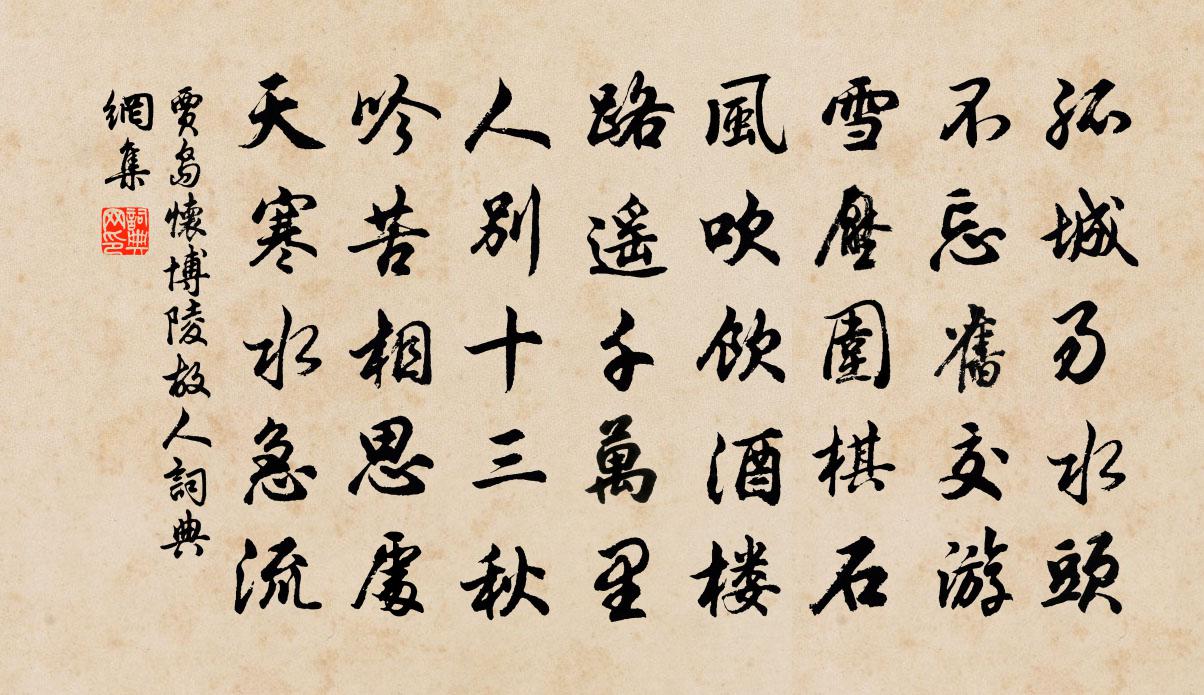 孤城易水頭
不忘舊交游
雪壓圍棋石
風吹飲酒樓
路遙千萬里
人別十三秋
吟苦相思處
天寒水急流
賈島懷博陵故人詞典
網集
詞典网印